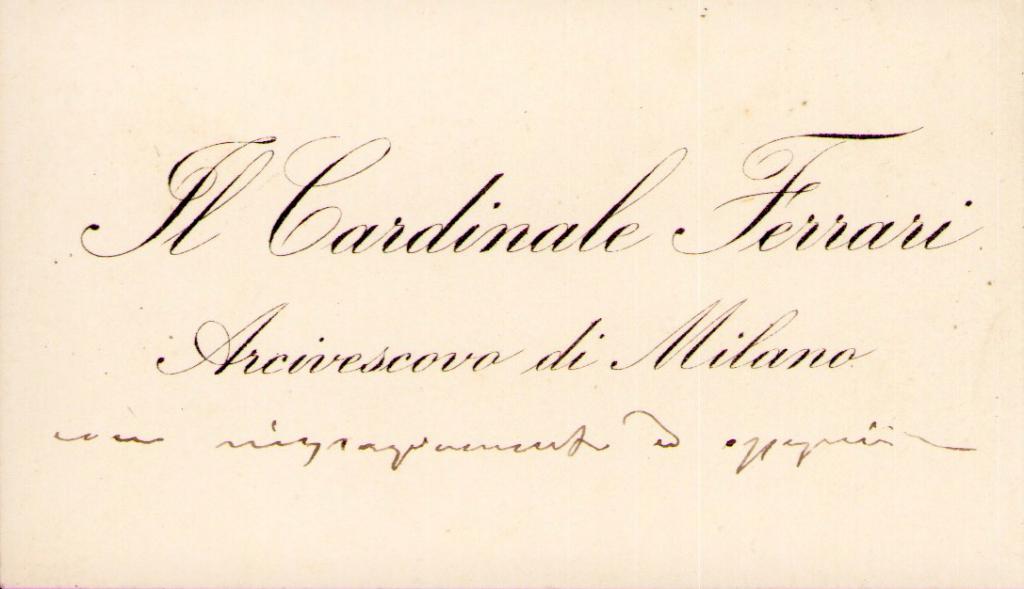 Il Cardinale Ferrari
Arcivescovo di Milano
con ringraziamento